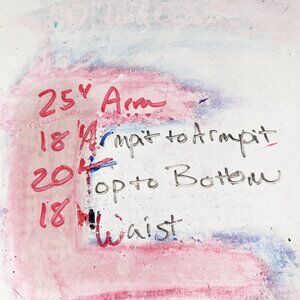 25" Arm
18" Armpit to Armpit
20" Top to Bottom
18" Waist